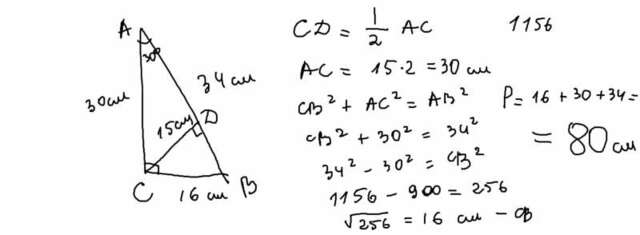 A
30°
30 см
34 см
15 см
D
C
16 см
B
CD = 1/2 AC
1156
AC = 15·2 = 30 см
CB² + AC² = AB²
P = 16 + 30 + 34 =
CB² + 30² = 34²
= 80 см
34² - 30² = CB²
1156 - 900 = 256
√256 = 16 см - CB